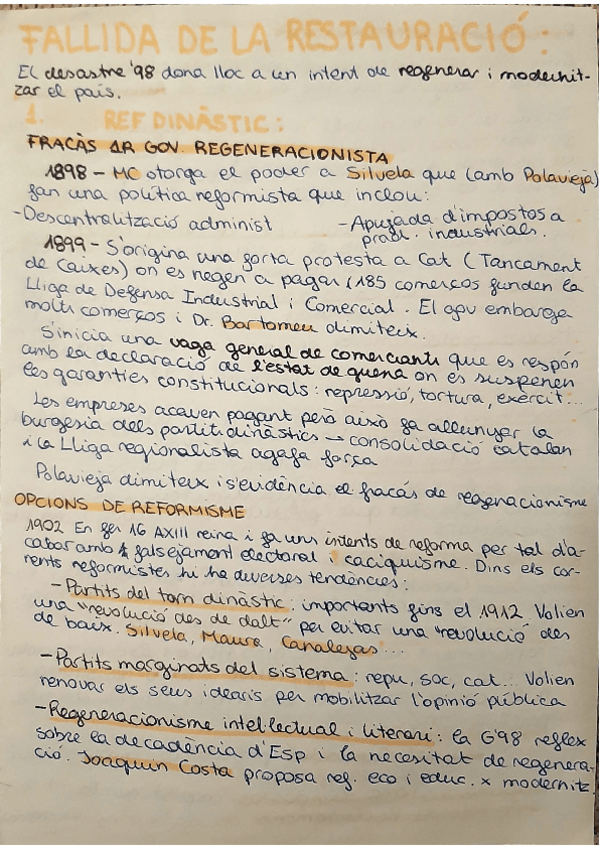 FALLIDA DE LA RESTAURACIÓ:
EL desastre '98 dona lloc a un intent de regenerar i modernit-
zar el país.
1. REF DINÀSTIC:
FRACÀS 1R GOV. REGENERACIONISTA
1898 - MC otorga el poder a Silvela que (amb Polavieja)
fan una política reformista que inclou:
-Descentralització administ -Apujada d'impostos a
prod. industrials.
1899 - S'origina una forta protesta a Cat (Tancament
de Caixes) on es negen a pagar i 185 comerços funden la
Lliga de Defensa Industrial i Comercial. El gov embarga
molts comerços i Dr. Bartomeu dimiteix.
S'inicia una vaga general de comerciants que es respon
amb la declaració de l'estat de guerra on es suspenen
les garanties constitucionals: repressió, tortura, exèrcit...
Les empreses acaven pagant però això fa allunyar la
burgesia dels partits dinàstics → consolidació catalan
i la Lliga regionalista agafa força
Polavieja dimiteix i s'evidència el fracàs de regenacionisme
OPCIONS DE REFORMISME
1902 En fer 16 AXIII reina i fa uns intents de reforma per tal d'a-
cabar amb falsejament electoral i caciquisme. Dins els cor-
rents reformistes hi ha diverses tendències:
-Partits del torn dinàstic: importants fins el 1912. Volien
una "revolució des de dalt" per evitar una "revolució des
de baix. Silvela, Maura, Canalejas...
-Partits marginats del sistema: repu, soc, cat... Volien
renovar els seus idearis per mobilitzar l'opinió pública
-Regeneracionisme intel·lectual i literari: la G'98 reflex
sobre la decadència d'Esp i la necesitat de regenera-
ció. Joaquin Costa proposa ref. eco i educ. x modernitz.